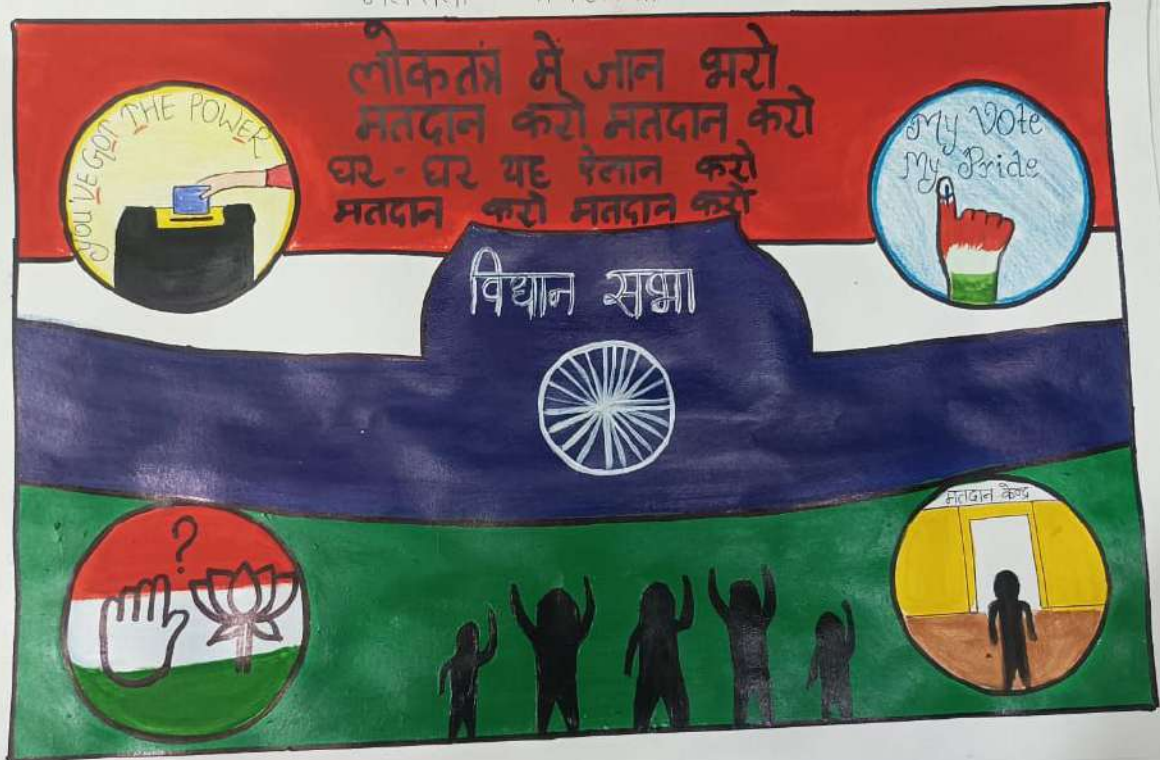 लोकतंत्र में जान भरो
मतदान करो मतदान करो
घर - घर यह ऐलान करो
मतदान करो मतदान करो
YOU'VE GOT THE POWER
My Vote
My Pride
विधान सभा
?
मतदान केन्द्र